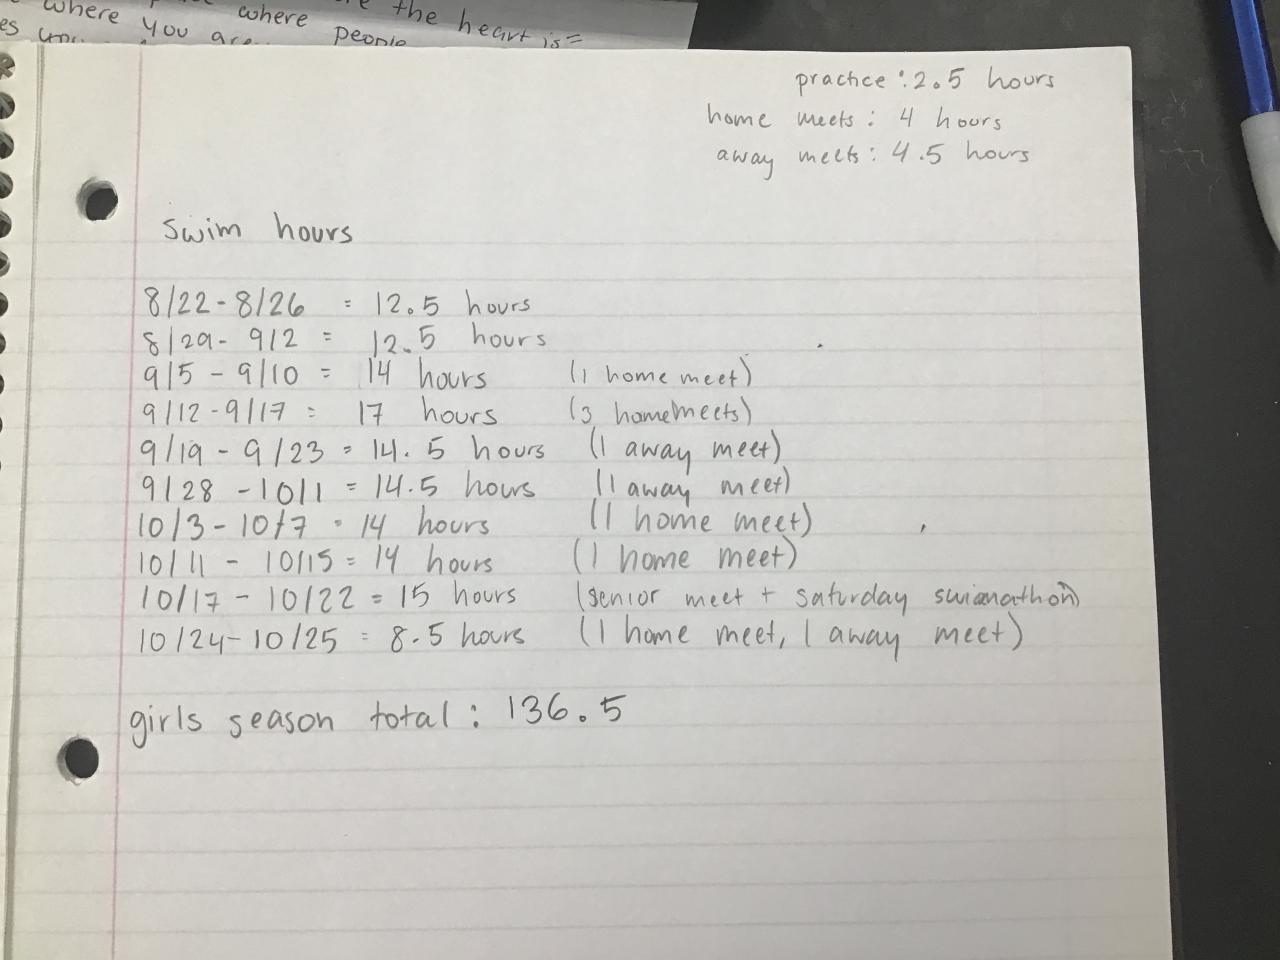 where you are where people the heart is=
practice : 2.5 hours
home meets : 4 hours
away meets : 4.5 hours
swim hours
8/22 - 8/26 = 12.5 hours
8/29 - 9/2 = 12.5 hours
9/5 - 9/10 = 14 hours (1 home meet)
9/12 - 9/17 = 17 hours (3 home meets)
9/19 - 9/23 = 14.5 hours (1 away meet)
9/28 - 10/1 = 14.5 hours (1 away meet)
10/3 - 10/7 = 14 hours (1 home meet)
10/11 - 10/15 = 14 hours (1 home meet)
10/17 - 10/22 = 15 hours (senior meet + saturday swimathon)
10/24 - 10/25 = 8.5 hours (1 home meet, 1 away meet)
girls season total : 136.5